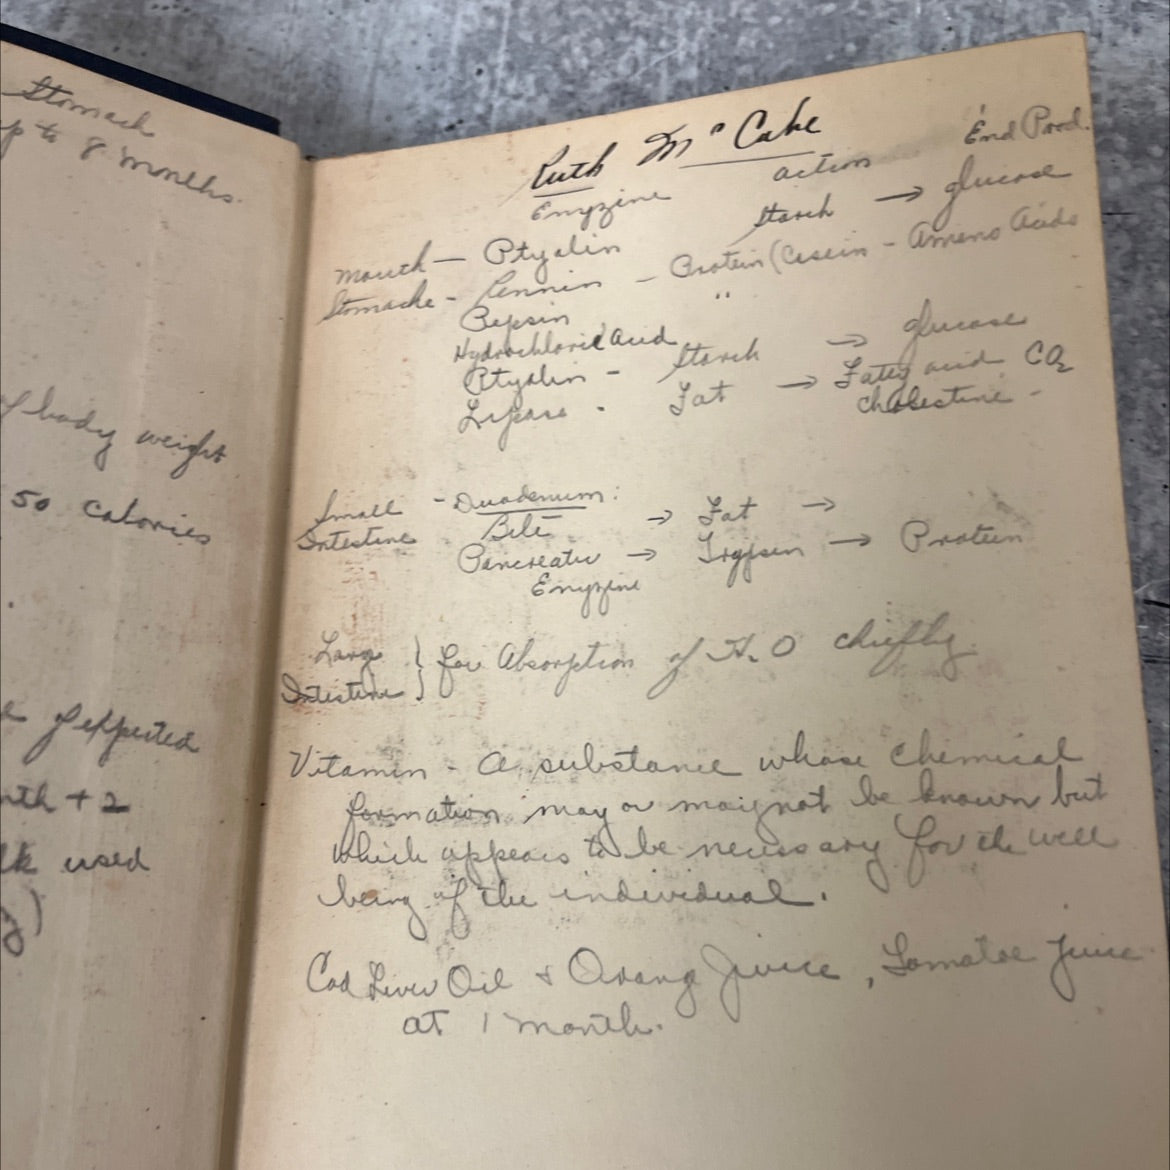 Stomach
up to 8 months.
of body weight
50 calories
if expected
nth + 2
lk used
Ruth Mc Cabe
Enyzine action End Prod.
Mouth — Ptyalin starch → glucose
Stomache - Rennin - Protein (Casein - Ameno Acids
Pepsin "
Hydrochloric Acid
Ptyalin - starch → glucose
Lipase - Fat → Fatty acid CO2
Cholestine -
Small - Duodenum:
Intestine Bile → Fat →
Pancreatic → Trypsin → Protein
Enyzine
Larg
Intestine } for Absorption of H2O chiefly
Vitamin - A substance whose chemical
formation may or may not be known but
which appears to be necessary for the well
being of the individual.
Cod Liver Oil & Orang Juice, Tomatoe juice
at 1 month.